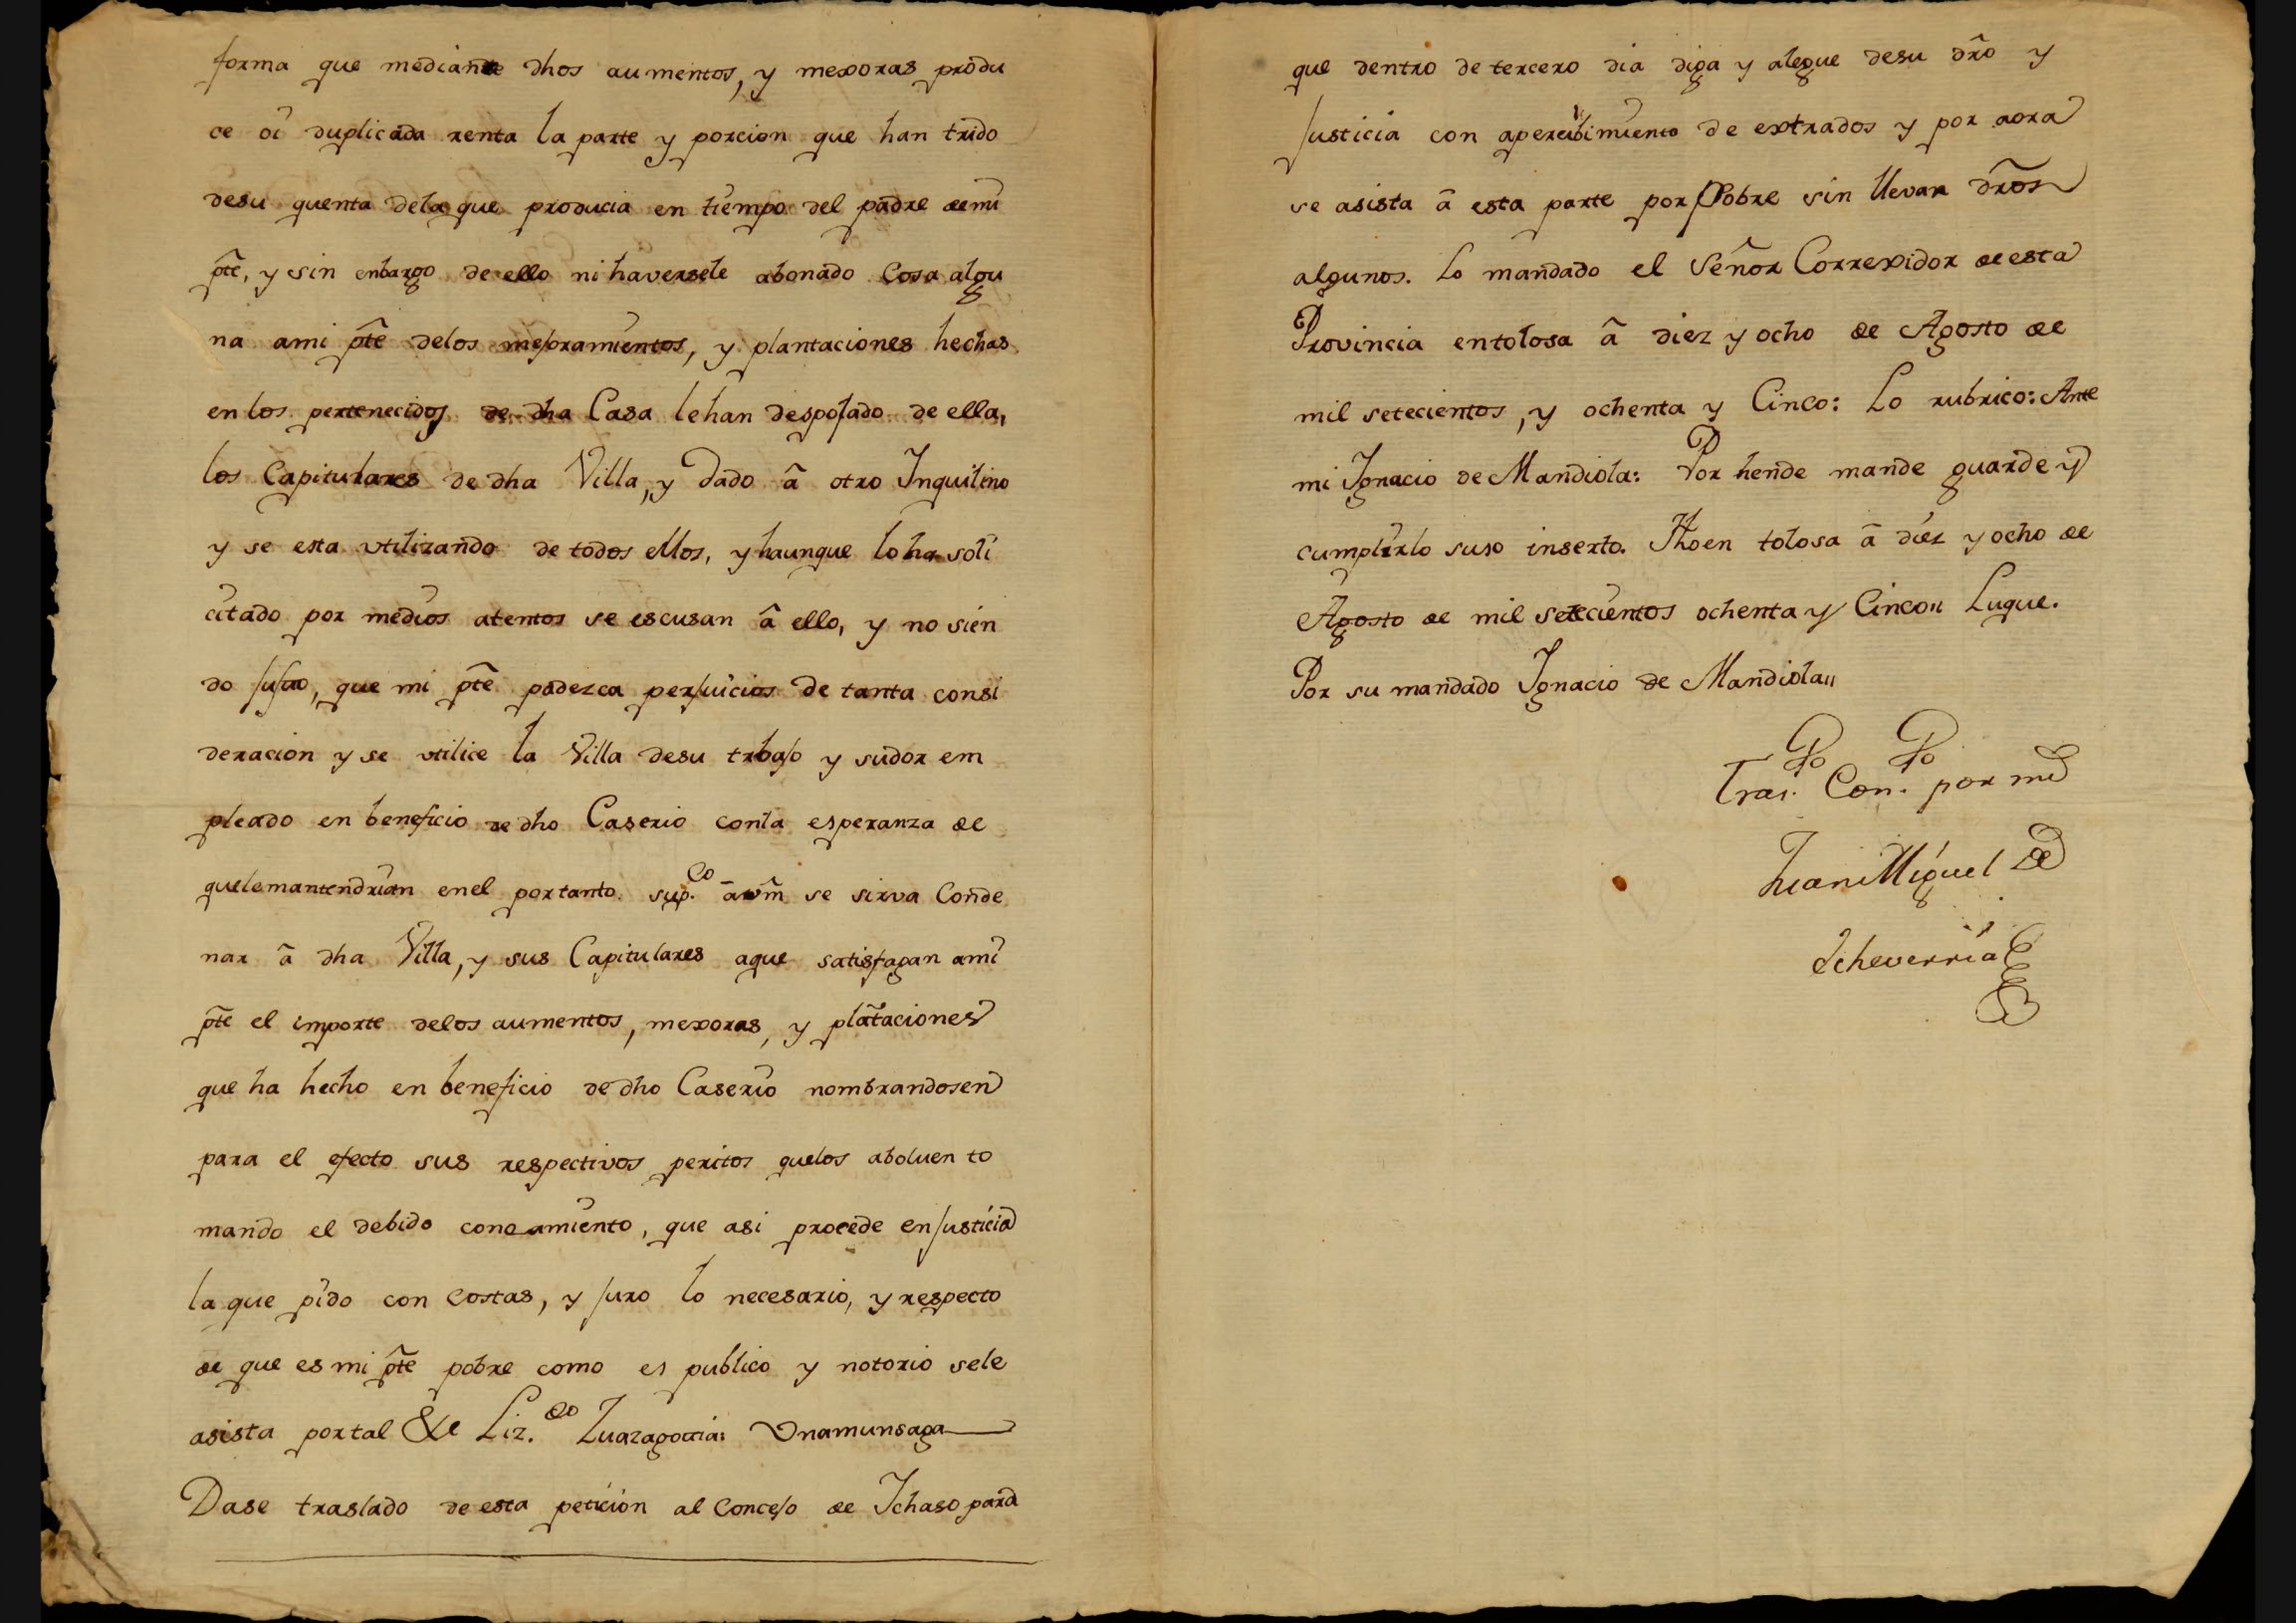 forma que mediante dhos aumentos, y mexoras produ
ce oi duplicada renta la parte y porcion que han trido
desu quenta dela que producia en tiempo del padre de mi
pte, y sin enbargo de ello ni haversele abonado Cosa algu
na ami pte delos mejoramientos, y plantaciones hechas
en los pertenecidos de dha Casa lehan despojado de ella,
los Capitulares de dha Villa, y dado â otro Inquilino
y se esta utilizando de todos ellos, y haunque lo ha soli
citado por medios atentos se escusan â ello, y no sien
do justo, que mi pte padezca perjuicios de tanta consi
deracion y se utilice la Villa desu trbajo y sudor em
pleado en beneficio de dho Caserio conla esperanza de
quelemantendrian enel portanto. sup.co avm se sirva Conde
nar â dha Villa, y sus Capitulares aque satisfagan ami
pte el importe delos aumentos, mexoras, y plãtaciones
que ha hecho en beneficio de dho Caserio nombrandosen
para el efecto sus respectivos peritos quelos aboluen to
mando el debido conoamiento, que asi procede en justicia
la que pido con Costas, y juro lo necesario, y respecto
de que es mi pte pobre como es publico y notorio sele
asista portal &e Liz.do Zuazagoitia: Unamunsaga
Dase traslado de esta peticion al Concejo de Ichaso para
que dentro de tercero dia diga y alegue desu dro y
justicia con apercibimiento de extrados y por aora
se asista â esta parte por Pobre sin llevar dros
algunos. Lo mandado el Señor Correxidor de esta
Provincia entolosa â diez y ocho de Agosto de
mil setecientos, y ochenta y Cinco: Lo rubrico: Ante
mi Ignacio de Mandiola: Por hende mande guarde y
cumplirlo suso inserto. Fho en tolosa â diez y ocho de
Agosto de mil setecientos ochenta y Cinco,, Luque.
Por su mandado Ignacio de Mandiola,,
Tras.do Con.do por mi
Juan Miguel de
Echeverria